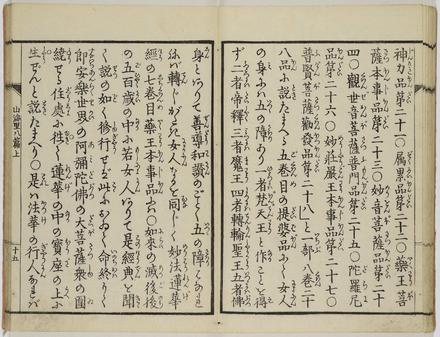 神力品第二十一〇属累品第二十二〇藥王菩
薩本事品第二十三〇妙音菩薩品第二十
四〇觀世音菩薩普門品第二十五〇陀羅尼
品第二十六〇妙莊嚴王本事品第二十七〇
普賢菩薩勸發品第二十八」一部八卷二十
八品に説たまへる五卷目の提婆品に女人
の身にハ五の障あり一者梵天王と作ことを得
ず二者帝釋三者魔王四者轉輪聖王五者佛
身とありて善導和讃のごとく五の障はなれ
ねば轉じがたき女人なるを同じく妙法蓮華
經の七卷目藥王本事品に〇如來の滅後後
の五百歳の中に若女人ありて是經典を聞
て説の如く修行せば此に於て命終して
即安樂世界の阿彌陀佛の大菩薩衆の圍
繞せる住處に往て蓮華の中の寶座の上に
生ぜんと説たまへり〇是ハ法華の行人なれば
山海里八篇上
十五